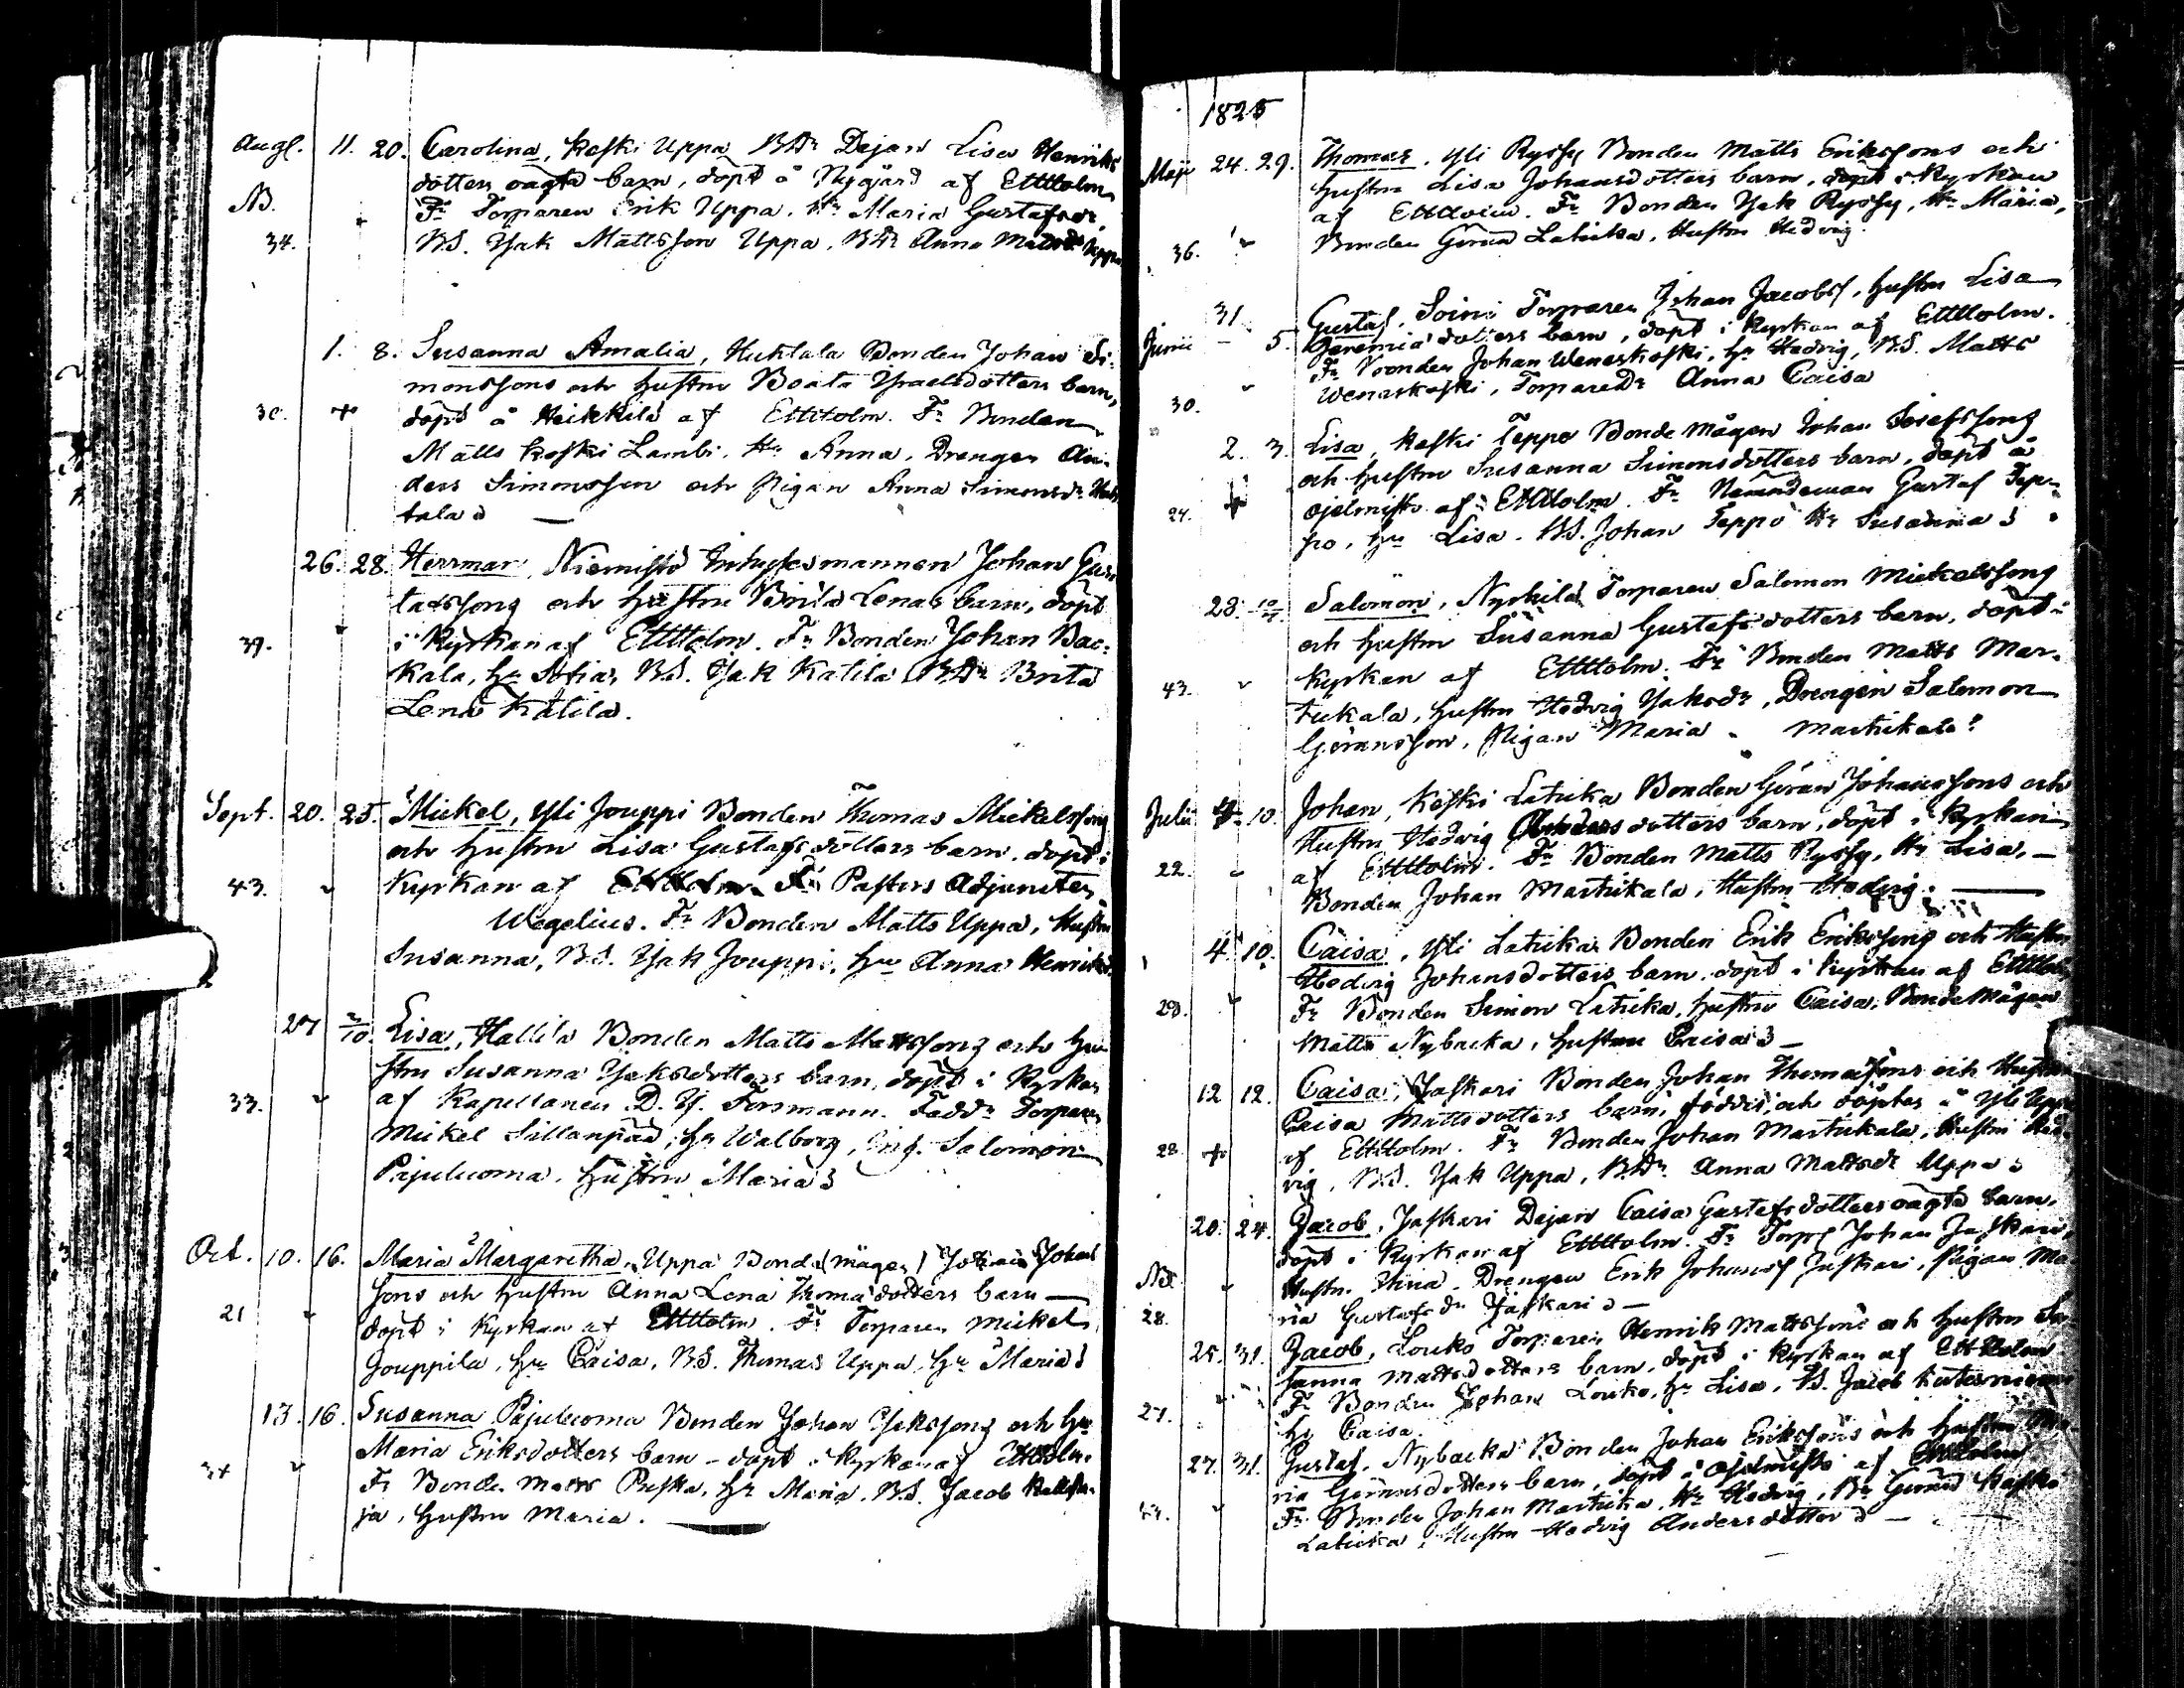 Augs. 11. 20. Carolina, Koski Uppa BDr Dejan Lisa Henriks
dotters oägta barn, döpt å Nygård af Ettholm
NB. Fr Torparen Erik Uppa. Hu Maria Gustafsdr,
34. BS. Isak Mattsson Uppa, BDr Anna Mattsdr Uppa
1. 8. Susanna Amalia, Huktala Bonden Johan Si-
monssons och hustru Beata Israelsdotters barn,
30. + döpt å Heikkilä af Ettholm. Fr Bonden
Matts Koski Lambi, Hu Anna, Drengen An-
ders Simonsson och Pigan Anna Simonsdr
tala
26. 28. Herrman, Niemistö Inhysesmannen Johan Gus-
tafssons och hustru Brita Lenas barn, döpt
39. i Kyrkan af Ettholm. Fr Bonden Johan Bac-
kala, Hu Sofia, BS. Isak Katila BDr Brita
Lena Katila.
Sept. 20. 25. Mickel, Yli Jouppi Bonden Thomas Mickelssons
och hustru Lisa Gustafsdotters barn, döpt i
43. Kyrkan af Pastors Adjuncten
Wegelius. Fr Bonden Matts Uppa, Hustru
Susanna, BS. Isak Jouppi, Hu Anna Henriksd.
27 2/10. Lisa, Hallila Bonden Matts Mattssons och hu-
stru Susanna Isaksdotters barn, döpt i Kyrkan
33. af Kapellanen D. H. Forsmann. Faddr Torparen
Mickel Sillanpää, Hu Walborg, Inh. Salomon
Pajuluoma, Hustru Maria
Oct. 10. 16. Maria Margaretha, Uppa Bonde(mågen) Johan Johans
sons och hustru Anna Lena Thomædotters barn
21 döpt i Kyrkan af Ettholm. Fr Torparen Mickel
Jouppila, Hu Caisa, BS. Thomas Uppa, Hu Maria
13. 16. Susanna Pajuluoma Bonden Johan Isakssons och Hu
Maria Eriksdotters barn - döpt i Kyrkan af Ettholm.
34 Fr Bonden Matts Puska, Hu Maria, BS. Jacob
ja, Hustru Maria.
1825
Maji 24. 29. Thomas, Yli Ryssy Bonden Matts Erikssons och
hustru Lisa Johansdotters barn, döpt i Kyrkan
af Ettholm. Fr Bonden Isak Ryssy, Hu Maria,
36. Bonden Göran Latukka, Hustru Hedvig.
31. Gustaf, Soini Torparen Johan Jacobss, hustru Lisa
Junii - 5. Jeremiædotters barn, döpt i Kyrkan af Ettholm.
Fr Bonden Johan Wenäskoski, Hu Hedvig, BS. Matts
30. Wenäskoski, TorpareDr Anna Caisa
2. 3. Lisa, Koski Teppo Bonde mågen Johan Josefssons
och hustru Susanna Simonsdotters barn, döpt å
24. + Ojelmisto af Ettholm. Fr Nämndeman Gustaf Tep-
po, Hu Lisa. BS. Johan Teppo Hu Susanna
28. 10/7. Salomon, Nyrhilä Torparen Salomon Mickelssons
och hustru Susanna Gustafsdotters barn, döpt i
43. Kyrkan af Ettholm. Fr Bonden Matts Mar-
tukala, hustru Hedvig Isaksdr, Drengen Salomon
Göransson, Pigan Maria Martukala
Julii 4. 10. Johan, Koski Latuka Bonden Göran Johanssons och
Hustru Hedvig Andersdotters barn, döpt i Kyrkan
22. af Ettholm. Fr Bonden Matts Ryssy, Hu Lisa,
Bonden Johan Martukala, Hustru Hedvig.
4. 10. Caisa, Yli Latuka Bonden Erik Erikssons och Hustru
Hedvig Johansdotters barn, döpt i Kyrkan af Ettholm
29. Fr Bonden Simon Latuka, hustru Caisa, Bonde mågen
Matts Nybacka, hustru Caisa
12 12. Caisa, Jaskari Bonden Johan Thomassons och Hustru
Caisa Mattsdotters barn, föddes och döptes å Yli Uppa
28 + af Ettholm. Fr Bonden Johan Martukala, Hustru Hed-
vig, BS. Isak Uppa, BDr Anna Mattsdr Uppa
20. 24. Jacob, Jaskari Dejan Caisa Gustafsdotters oägta barn,
döpt i Kyrkan af Ettholm. Fr Torpr Johan Jaskari,
NB. Hustru Anna. Drengen Erik Johanss Jaskari, Pigan Ma-
28. ria Gustafsdr Jaskari
25. 31. Jacob, Louko Torparen Henrik Mattssons och hustru Su-
sanna Mattsdotters barn, döpt i Kyrkan af Ettholm
27. Fr Bonden Johan Louko, Hu Lisa, BS. Jacob
Hu Caisa.
27. 31. Gustaf, Nybacka Bonden Johan Erikssons och hustru Ma-
ria Göransdotters barn, döpt å Ojelmisto af Ettholm
Fr Bonden Johan Martuka, Hu Hedvig, Bn Göran Koski
Latuka, Hustru Hedvig Andersdotter